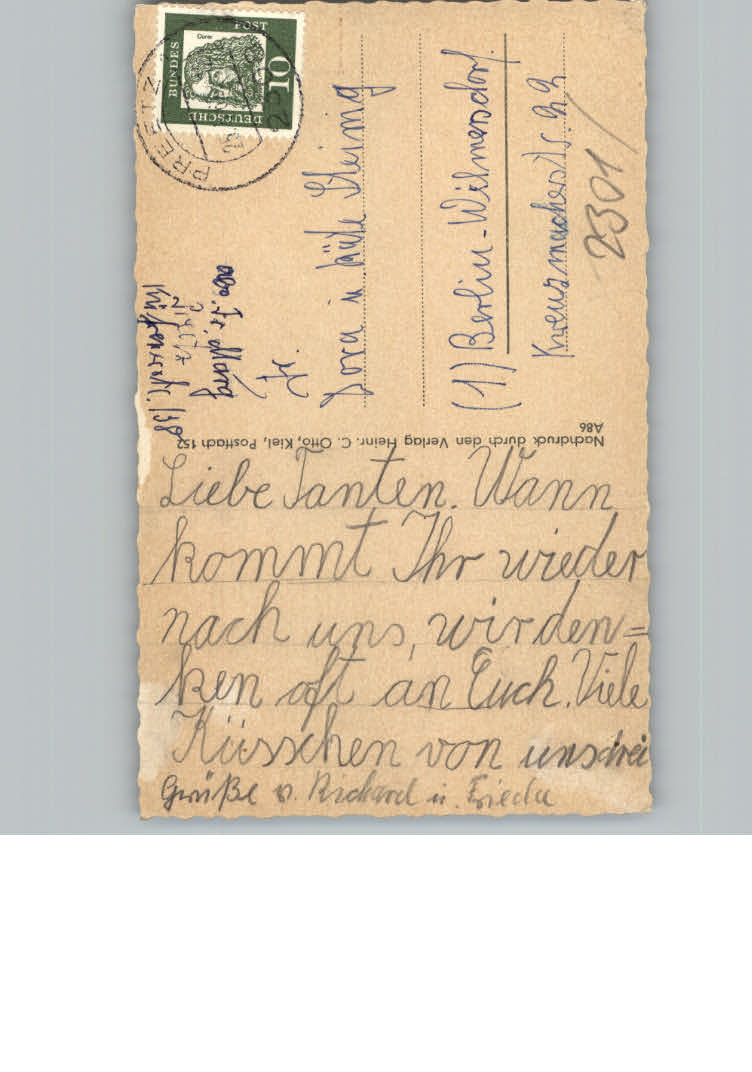 Liebe Tanten. Wann
kommt Ihr wieder
nach uns, wir den=
ken oft an Euch. Viele
Küsschen von uns drei
Grüße v. Richard u. Frieda
Nachdruck durch den Verlag Heinr. C. Otto, Kiel, Postfach 152
A86
DEUTSCHE BUNDESPOST
10
Dürer
PREETZ
Abs. Fr.
Preetz
Fr.
Dora u Käte
(1) Berlin-Wilmersdorf.
Kreuznacherstr. 22
2301/